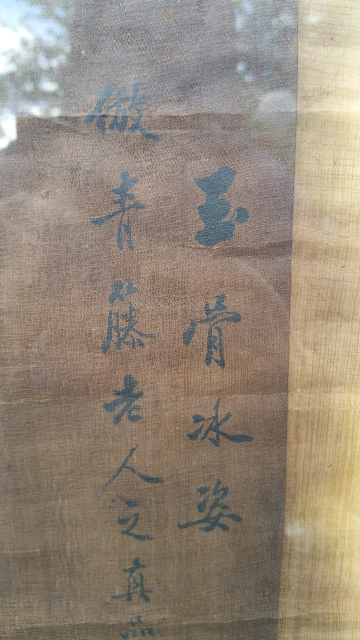 玉骨冰姿
倣青藤老人之真